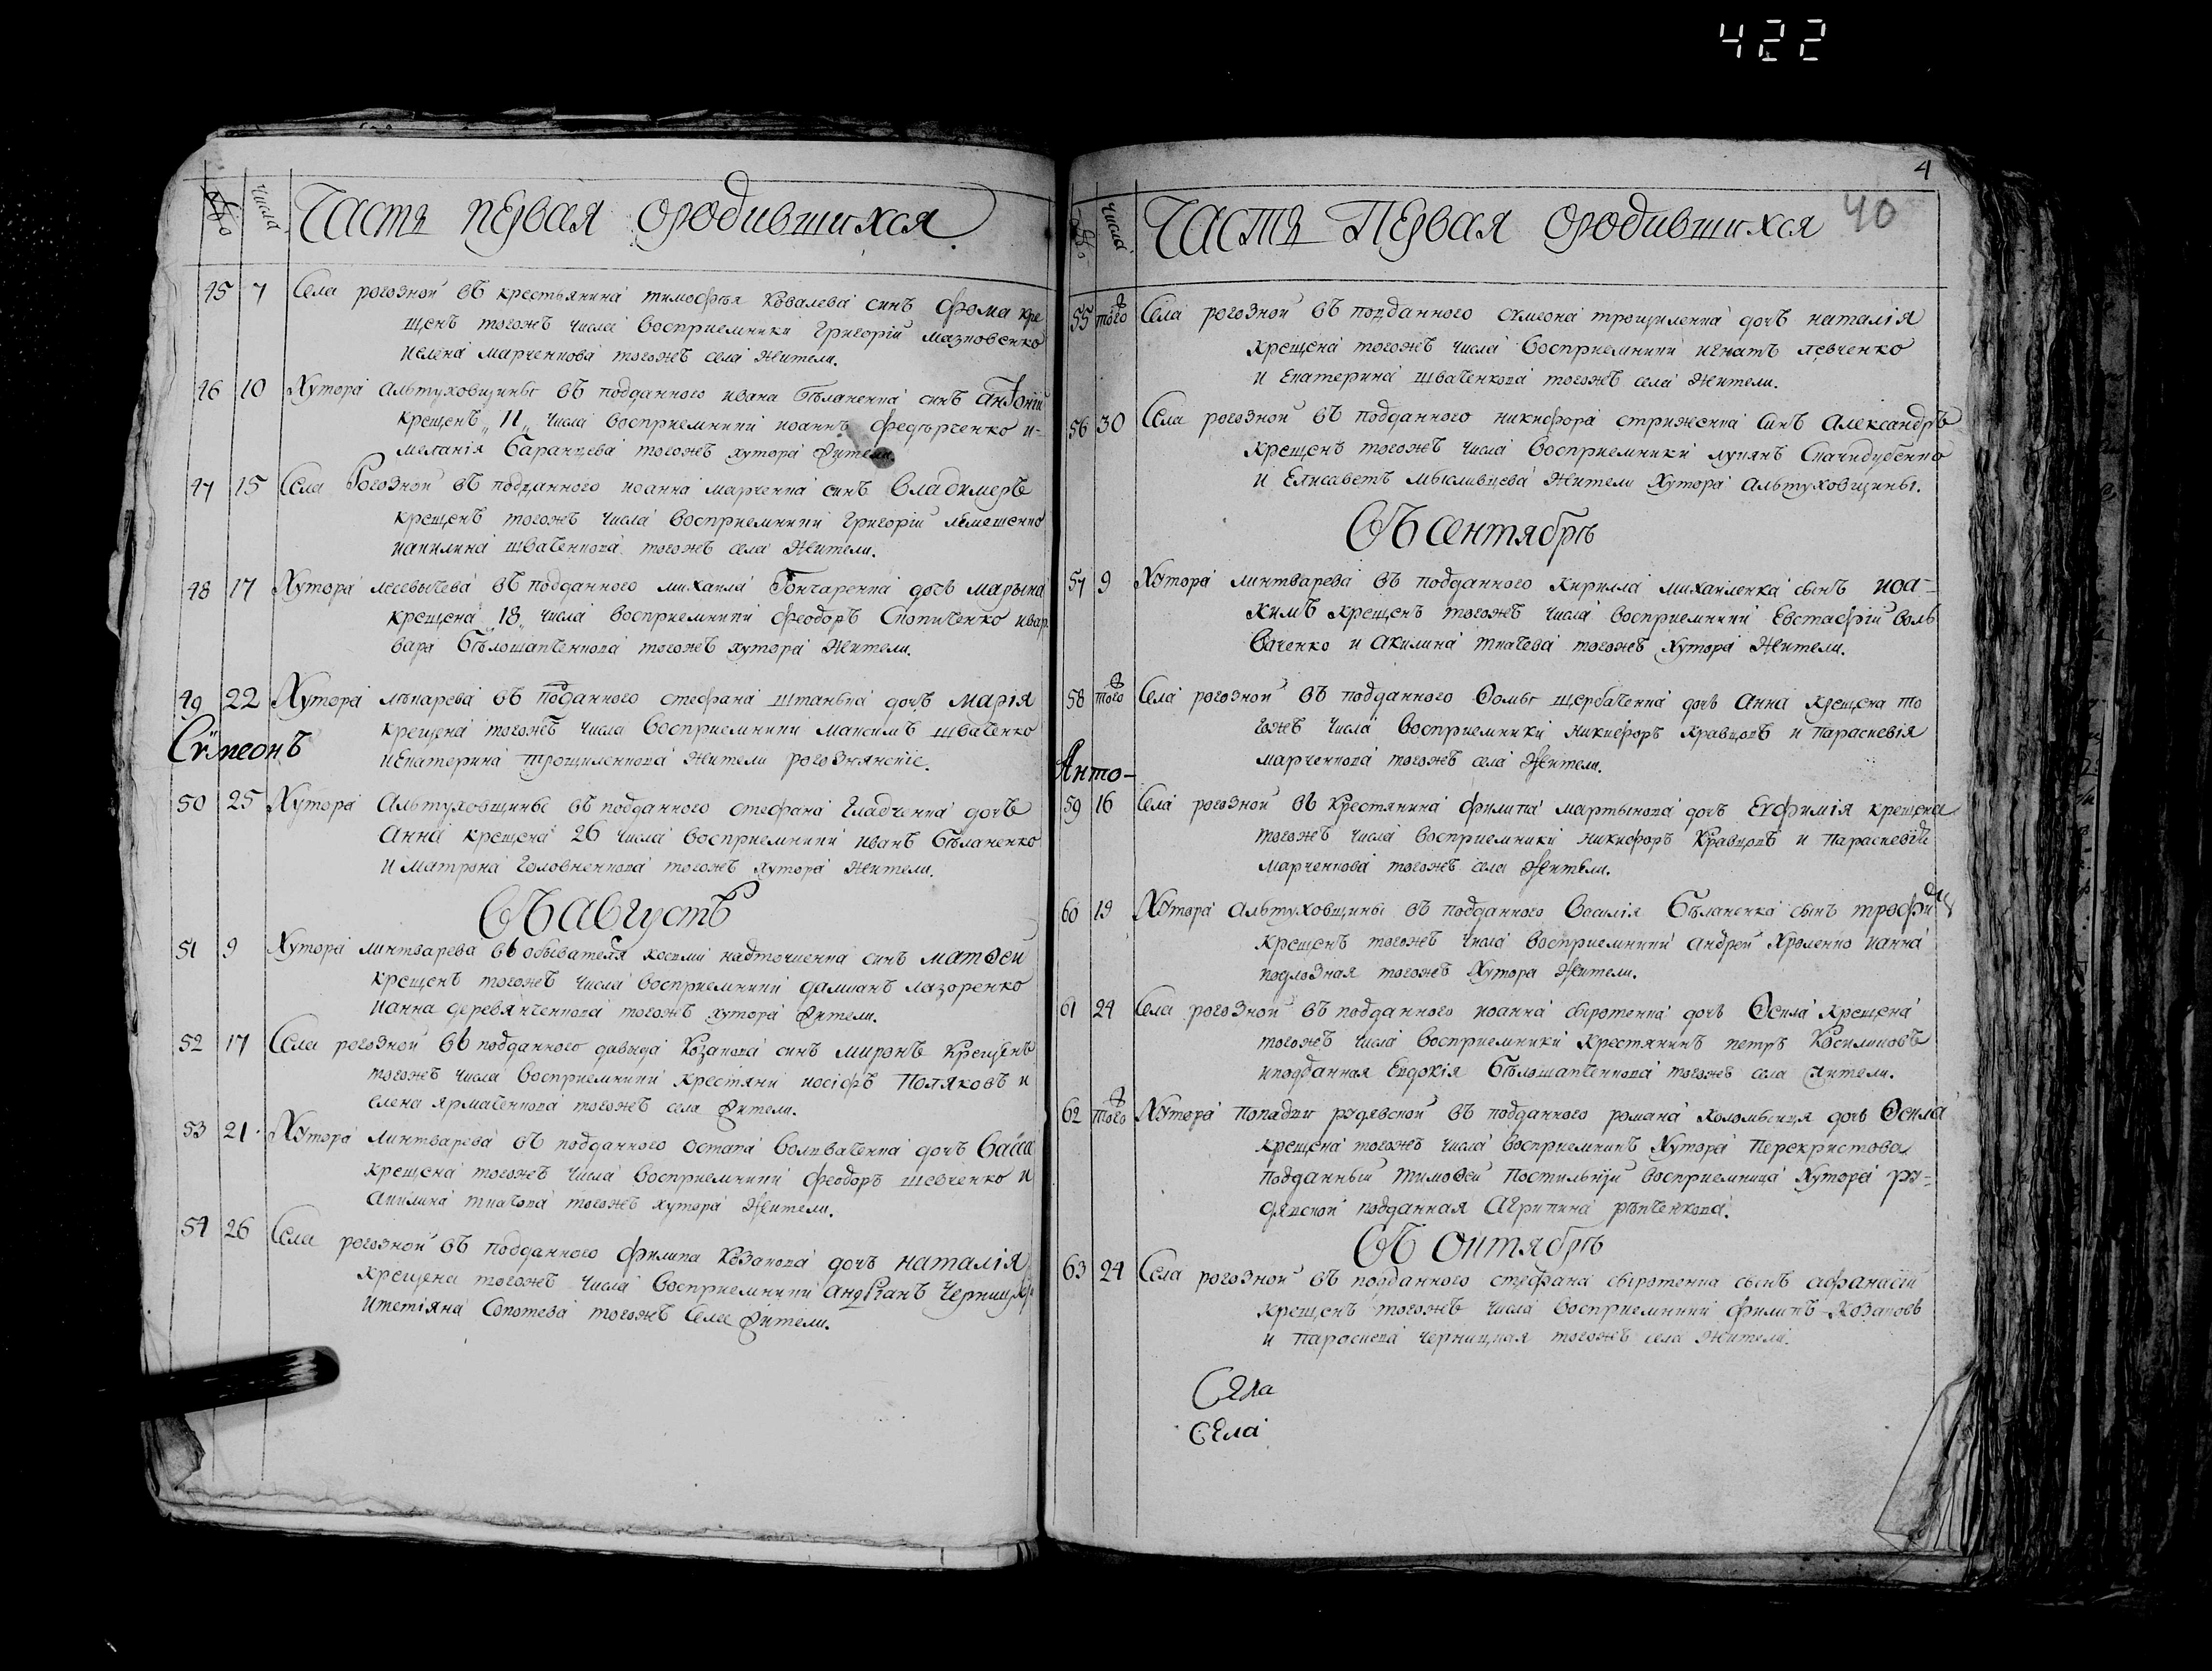 422
№ числа Часть первая ородившихся
45 7 Села рогозной въ крестьянина тимофѣя Ковалева синъ фома кре
щенъ тогожъ числа восприемники григорій мазновенко
иелена марченкова тогожъ села жители.
46 10 Хутора альтуховщины въ подданного ивана бѣланенка синъ антоній
крещенъ „11„ числа восприемники иоаннъ федърченко и-
меланія баранцева тогожъ хутора жители
47 15 Села Рогозной въ подданного иоанна марченка синъ владимеръ
крещенъ тогожъ числа восприемники григорій лемешенко
иакилина шваченкова тогожъ села жители.
48 17 Хутора лесевычева въ подданного михаила Гончаренка дочъ марына
крещена „18„ числа восприемники феодоръ Скопиченко ивар
вара бѣлошапченкова тогожъ хутора жители.
49 22 Хутора лѣкарева въ подданного стефана штанька дочъ марія
крещена тогожъ числа восприемники максимъ шваченко
иекатерина трощиленкова жители рогознянскіе.
Сѵмеонъ
50 25 Хутора Альтуховщины въ подданного стефана гладченка дочъ
анна крещена 26 числа восприемники иванъ бѣланенко
и матрона головненкова тогожъ хутора жители.
Въ августъ
51 9 Хутора линтварева въ обывателя косми надточиенка синъ матѳеи
крещенъ тогожъ числа восприемники дамианъ лазоренко
ианна деревянченкова тогожъ хутора жители.
52 17 Села рогозной въ подданного давыда Козакова синъ миронъ крещенъ
тогожъ числа восприемники крестяни иосіфъ Поляковъ и
елена ярмаченкова тогожъ села жители.
53 21 Хутора линтварева въ подданного остапа волвваченка дочъ васса
крещена тогожъ числа восприемники феодоръ шевченко и
акилина ткачова тогожъ хутора жители.
54 26 Села рогозной въ подданного филипа Козакова дочъ наталія
крещена тогожъ числа восприемники андріанъ
итетіяна Сопотева тогожъ села жители.
4
№ числа Часть Первая ородившихся 40
55 того Села рогозной въ подданного сѵмеона трощиленка дочъ наталія
крещена тогожъ числа восприемники игнатъ левченко
и екатерина шваченкова тогожъ села жители.
56 30 Села рогозной въ подданного никифора стриженка синъ Александръ
крещенъ тогожъ числа восприемники лукянъ Скачидубенко
и Елисаветъ мысливцева жители Хутора альтуховщины.
Въ сентябрѣ
57 9 Хутора линтварева въ подданного кирилла михаиленка сынъ иоа-
кимъ крещенъ тогожъ числа восприемники Евстафій воль
ваченко и акилина ткачева тогожъ хутора жители.
58 того Села рогозной въ подданного Ѳомы щербаченка дочъ анна крещена то
гожъ числа восприемники никифоръ кравцовъ и параскевія
марченкова тогожъ села жители.
Анто-
59 16 Села рогозной въ крестянина филипа мартынова дочъ Евфимія крещена
тогожъ числа восприемники никифоръ Кравцовъ и параскевія
марченкова тогожъ села жители.
60 19 Хутора альтуховщины въ подданного Василія бѣланенка сынъ трофи
крещенъ тогожъ числа восприемники андрей Хроленко ианна
тогожъ Хутора жители.
61 24 Села рогозной въ подданного иоанна сыротенка дочъ Ѳекла крещена
тогожъ числа восприемники крестянинъ петръ Косиликовъ
иподданная Евдокія бѣлошапченкова тогожъ села жители.
62 того Хутора попадки рудявской въ подданного романа коломыйця дочъ Ѳекла
крещена тогожъ числа восприемникъ Хутора Перекристова
подданный тимоѳей Постильній восприемница Хутора ру-
дявской подданная Агрипина рѣпченкова.
Въ октябрѣ
63 24 Села рогозной въ подданного стефана сыротенка сынъ афанасій
крещенъ тогожъ числа восприемники филипъ Козаковъ
и параскева черницкая тогожъ села жители.
Села
Села